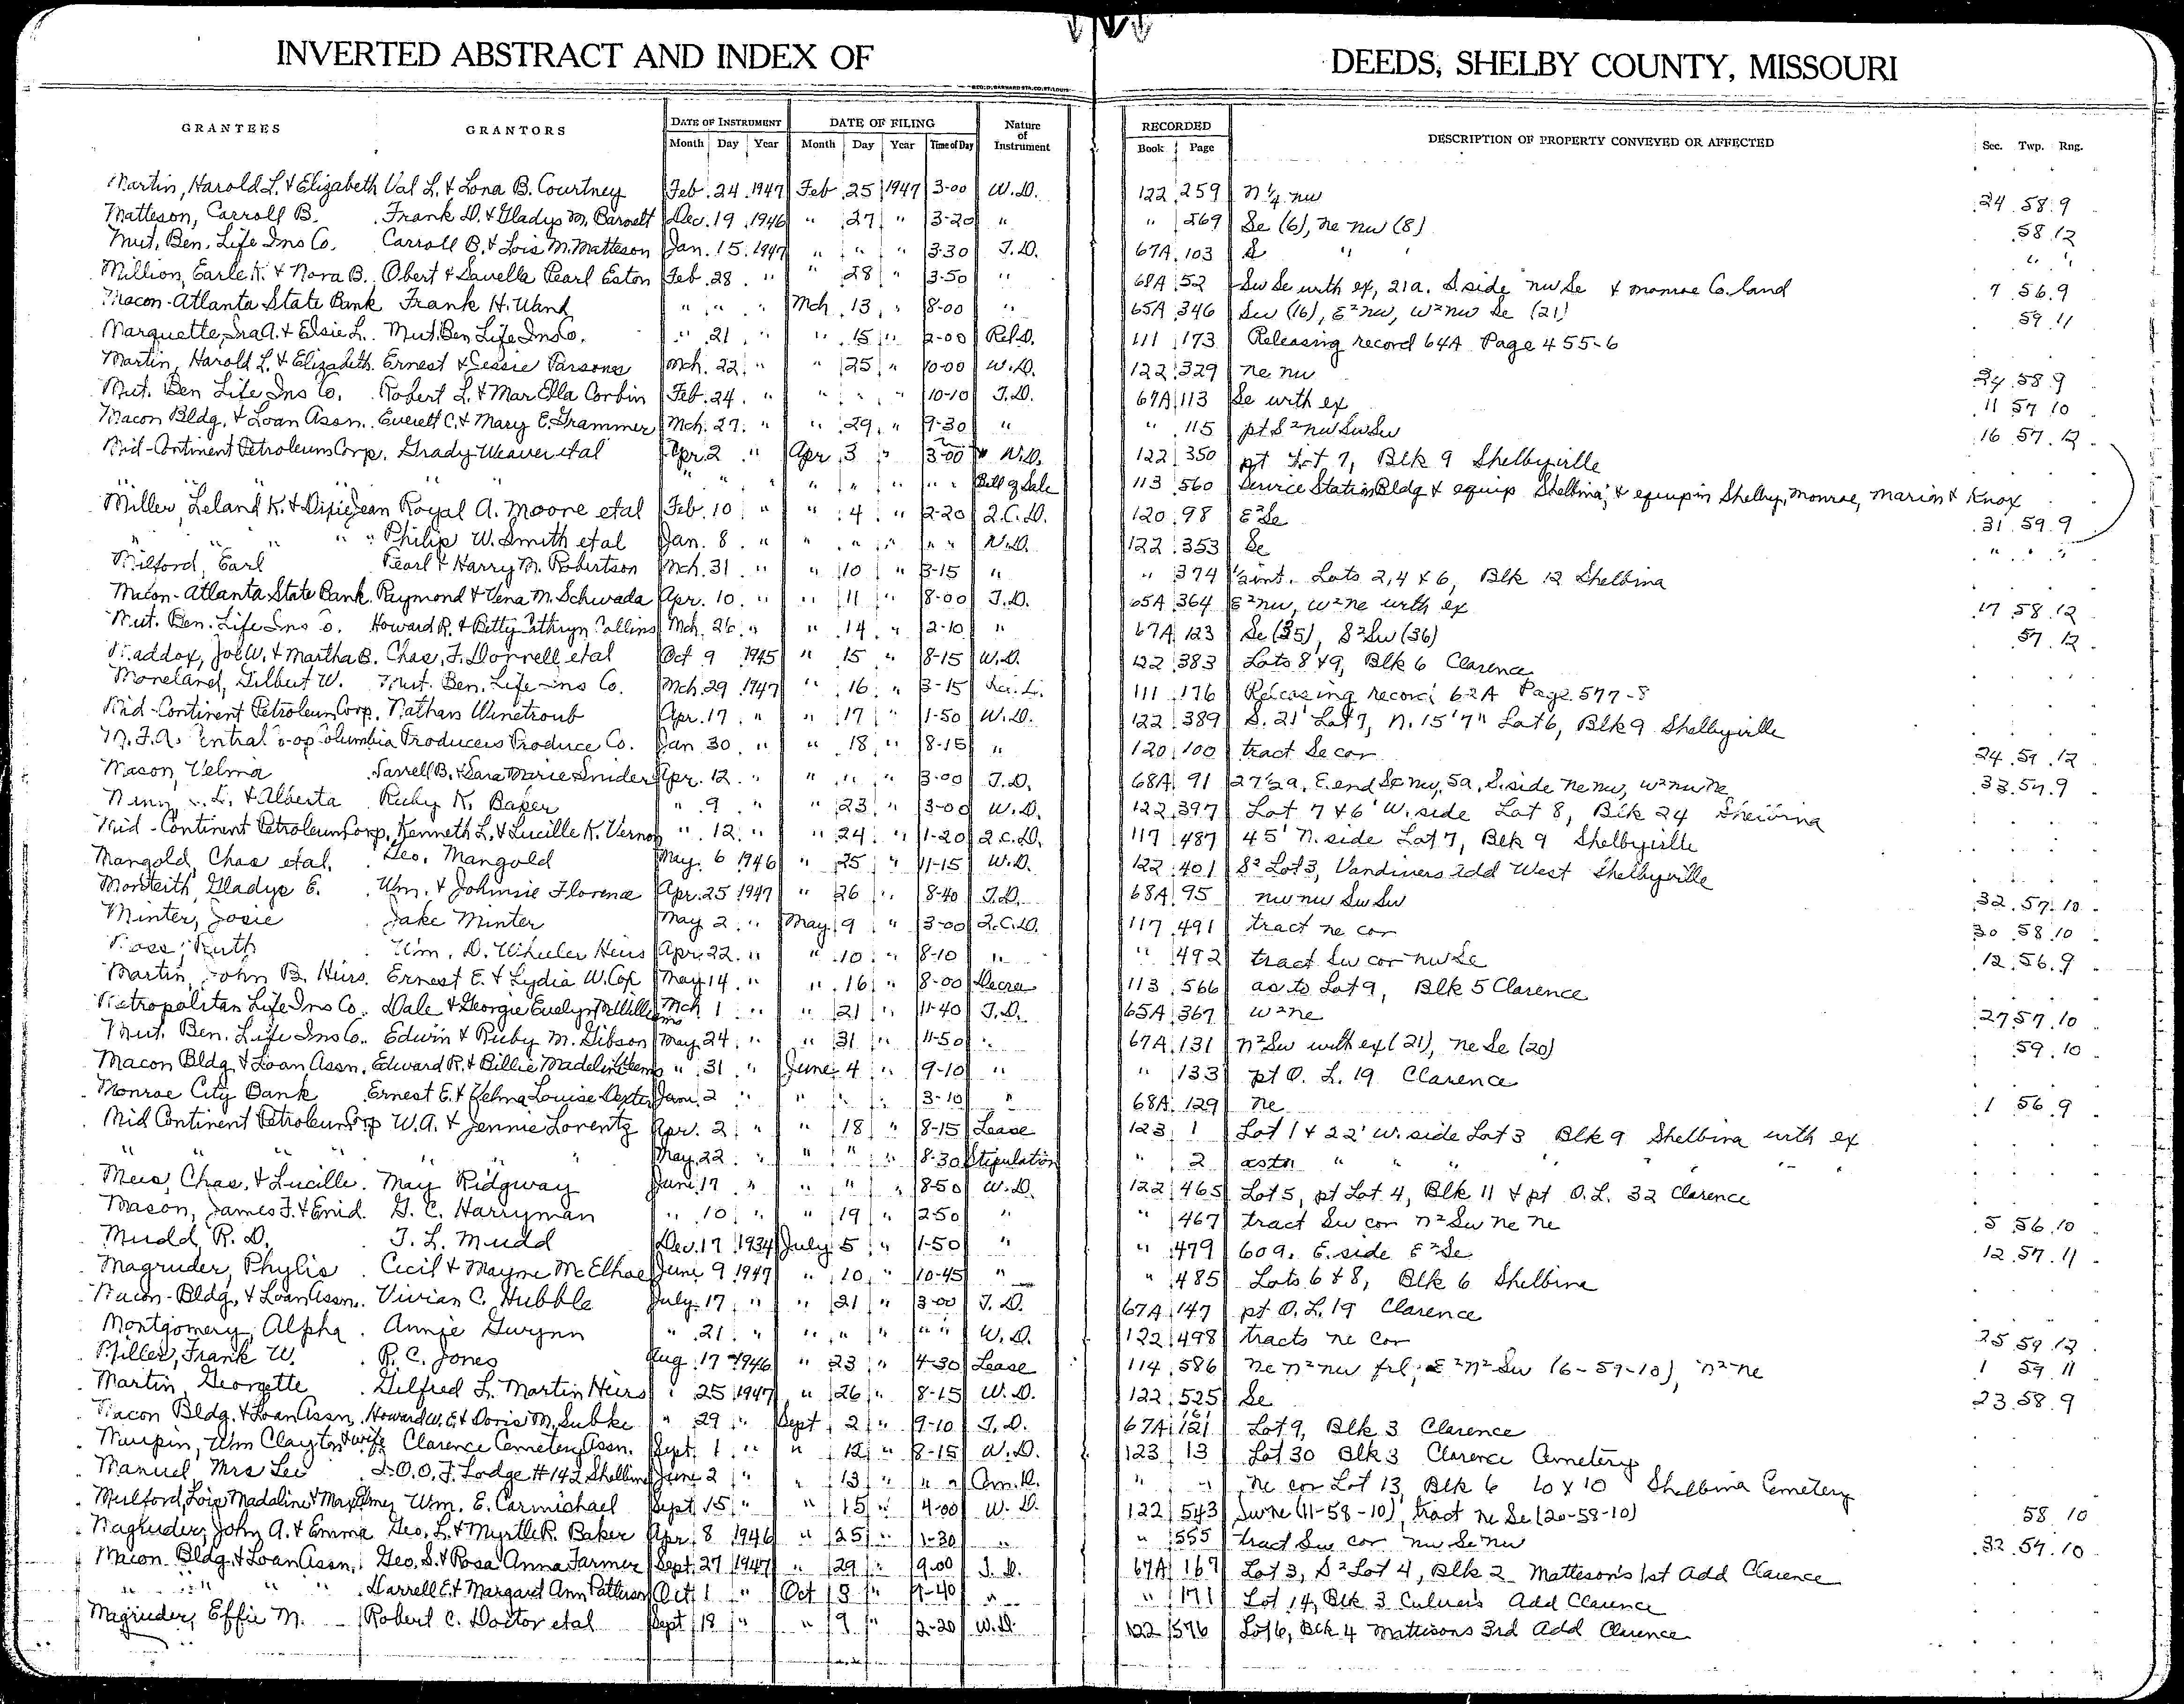 INVERTED ABSTRACT AND INDEX OF DEEDS, SHELBY COUNTY, MISSOURI
GRANTEES GRANTORS DATE OF INSTRUMENT DATE OF FILING Nature of Instrument RECORDED DESCRIPTION OF PROPERTY CONVEYED OR AFFECTED Sec. Twp. Rng.
Month Day Year Month Day Year Time of Day Book Page
Martin, Harold L. & Elizabeth Val L. & Lona B. Courtney Feb. 24 1947 Feb 25 1947 3-00 W.D. 122 259 N 1/4 nw 24 58 9
Matteson, Carroll B. Frank D. & Gladys M. Barnett Dec. 19 1946 " 27 " 3-20 " " 269 Se (6), ne nw (8) 58 12
Mut. Ben. Life Ins Co. Carroll B. & Lois M. Matteson Jan. 15 1947 " " " 3-30 T.D. 67A 103 S " " " "
Million, Earle K. & Nora B. Obert & Pearl Eston Feb 28 " " 28 " 3-50 " 68A 52 Sw Se with ex, 21a. S. side nw Se & Monroe Co. land 7 56 9
Macon-Atlanta State Bank Frank H. Wand " " " Mch. 13 " 8-00 " 65A 346 Sw (16), E²nw, W²nw Se (21) 59 11
Marquette, Ira A. & Elsie L. Mut. Ben Life Ins Co. " 21 " " 15 " 2-00 Rel D. 111 173 Releasing record 64A Page 455-6
Martin, Harold L. & Elizabeth. Ernest & Jessie Parsons Mch. 22 " " 25 " 10-00 W.D. 122 329 ne nw 24 58 9
Mut. Ben Life Ins Co. Robert L. & Mar Ella Corbin Feb. 24 " " " " 10-10 T.D. 67A 113 Se with ex 11 57 10
Macon Bldg. & Loan Assn. Everett C. & Mary E. Grammer Mch. 27 " " 29 " 9-30 " " 115 pt S²nw Sw Sw 16 57 12
Mid-Continent Petroleum Corp. Grady Weaver etal Apr. 2 " Apr 3 " 3-00 W.D. 122 350 pt Lot 7, Blk 9 Shelbyville
" " " " " " " " " " " Bill of Sale 113 560 Service Station Bldg & equip Shelbina, & equip in Shelby, Monroe, Marion & Knox
Miller, Leland K. & Dixie Jean Royal A. Moore etal Feb. 10 " " 4 " 2-20 Q.C.D. 120 98 E²Se 31 59 9
" " " " Philip W. Smith etal Jan. 8 " " " " " " W.D. 122 353 Se " " "
Milford, Earl Pearl & Harry M. Robertson Mch. 31 " " 10 " 3-15 " " 374 Lots 2, 4 & 6, Blk 12 Shelbina
Macon-Atlanta State Bank. Raymond & Vena M. Schwada Apr. 10 " " 11 " 8-00 T.D. 65A 364 E²nw, W²ne with ex 17 58 12
Mut. Ben. Life Ins Co. Howard R. & Betty Cathryn Collins Mch. 26 " " 14 " 2-10 " 67A 123 Se (35), S²Sw (36) 57 12
Maddox, Joe W. & Martha B. Chas. F. Dorrell etal Oct 9 1945 " 15 " 8-15 W.D. 122 383 Lots 8 & 9, Blk 6 Clarence
Moreland, Gilbert W. Mut. Ben. Life Ins Co. Mch. 29 1947 " 16 " 3-15 111 176 Releasing record 62A Page 577-8
Mid-Continent Petroleum Corp. Nathan Winetroub Apr. 17 " " 17 " 1-50 W.D. 122 389 S. 21' Lot 7, N. 15'7" Lot 6, Blk 9 Shelbyville
M.F.A. Central Co-op Columbia Producers Produce Co. Jan 30 " " 18 " 8-15 " 120 100 tract Se cor 24 59 12
Mason, Velma Darrell B. & Sara Marie Snider Apr. 12 " " " " 3-00 T.D. 68A 91 27½a, E. end Se nw, 5a, S. side ne nw, W²nw ne 33 59 9
& Alberta Ruby K. Baker " 9 " " 23 " 3-00 W.D. 122 397 Lot 7 & 6' W. side Lot 8, Blk 24 Shelbina
Mid-Continent Petroleum Corp. Kenneth L. & Lucille K. Vernon " 12 " " 24 " 1-20 Q.C.D. 117 487 45' N. side Lot 7, Blk 9 Shelbyville
Mangold, Chas etal. Geo. Mangold May 6 1946 " 25 " 11-15 W.D. 122 401 S² Lot 3, Vandivers Add West Shelbyville
Monteith, Gladys E. Wm. & Johnnie Florence Apr. 25 1947 " 26 " 8-40 T.D. 68A 95 nw nw Sw Sw 32 57 10
Minter, Josie Jake Minter May 2 " May 9 " 3-00 Q.C.D. 117 491 tract ne cor 30 58 10
Moss, Ruth Wm. D. Wheeler Heirs Apr. 22 " " 10 " 8-10 " " 492 tract Sw cor nw Se 12 56 9
Martin, John B. Heirs. Ernest E. & Lydia W. Cox May 14 " " 16 " 8-00 Decree 113 566 as to Lot 9, Blk 5 Clarence
Metropolitan Life Ins Co. Dale & Georgie Evelyn McWilliams Mch 1 " " 21 " 11-40 T.D. 65A 367 W²ne 27 57 10
Mut. Ben. Life Ins Co. Edwin & Ruby M. Gibson May 24 " " 31 " 11-50 " 67A 131 N²Sw with ex (21), ne Se (20) 59 10
Macon Bldg & Loan Assn. Edward R. & Billie Madeline " 31 " June 4 " 9-10 " " 133 pt O. L. 19 Clarence
Monroe City Bank Ernest E. & Velma Louise Dexter June 2 " " " " 3-10 " 68A 129 ne 1 56 9
Mid Continent Petroleum Corp W.A. & Jennie Lorentz Apr. 2 " " 18 " 8-15 Lease 123 1 Lot 1 & 22' W. side Lot 3 Blk 9 Shelbina with ex
" " " " " " May 22 " " " " 8-30 Stipulation " 2 as to " " " " " " "
Meis, Chas. & Lucille. May Ridgway June 17 " " " " 8-50 W.D. 122 465 Lot 5, pt Lot 4, Blk 11 & pt O.L. 32 Clarence
Mason, James F. & Enid. G. C. Harryman " 10 " " 19 " 2-50 " " 467 tract Sw cor N²Sw ne ne 5 56 10
Mudd, R. D. T. L. Mudd Dec. 17 1934 July 5 " 1-50 " " 479 60a. E. side E²Se 12 57 11
Magruder, Phylis Cecil & Mayme McElhoe June 9 1947 " 10 " 10-45 " " 485 Lots 6 & 8, Blk 6 Shelbina
Macon-Bldg. & Loan Assn. Vivian C. Hubble July 17 " " 21 " 3-00 T.D. 67A 147 pt O.L. 19 Clarence
Montgomery, Alpha. Annie Gwynn " 21 " " " " " " W.D. 122 498 tracts ne cor 25 59 12
Miller, Frank W. R. C. Jones Aug. 17 1946 " 23 " 4-30 Lease 114 586 ne N²nw frl, E²N²Sw (6-59-10), N²ne 1 59 11
Martin, Georgette Gilfred L. Martin Heirs " 25 1947 " 26 " 8-15 W.D. 122 525 Se 23 58 9
Macon Bldg. & Loan Assn. Howard W. E. & Doris M. Subke " 29 " Sept 2 " 9-10 T.D. 67A 161 Lot 9, Blk 3 Clarence
Maupin, Wm Clayton & wife Clarence Cemetery Assn. Sept. 1 " " 12 " 8-15 W.D. 123 13 Lot 30 Blk 3 Clarence Cemetery
Manuel, Mrs Lee I.O.O.F. Lodge #142 Shelbina June 2 " " 13 " " " Cem. D. " " ne cor Lot 13, Blk 6 10 x 10 Shelbina Cemetery
Mulford, Lois Madaline & Max Elmer Wm. E. Carmichael Sept. 15 " " 15 " 4-00 W.D. 122 543 Sw ne (11-58-10), tract ne Se (20-58-10) 58 10
Magruder, John A. & Emma Geo. L. & Myrtle R. Baker Apr. 8 1946 " 25 " 1-30 " " 555 tract Sw cor nw Se nw 32 57 10
Macon Bldg. & Loan Assn. Geo. S. & Rosa Anna Farmer Sept. 27 1947 " 29 " 9-00 T.D. 67A 167 Lot 3, S² Lot 4, Blk 2 Matteson's 1st Add Clarence
" " " " Darrell E. & Margaret Ann Patterson Oct 1 " Oct 8 " 9-40 " " 171 Lot 14, Blk 3 Culver's Add Clarence
Magruder, Effie M. Robert C. Doctor etal Sept 18 " " 9 " 2-20 W.D. 122 576 Lot 6, Blk 4 Mattisons 3rd Add Clarence